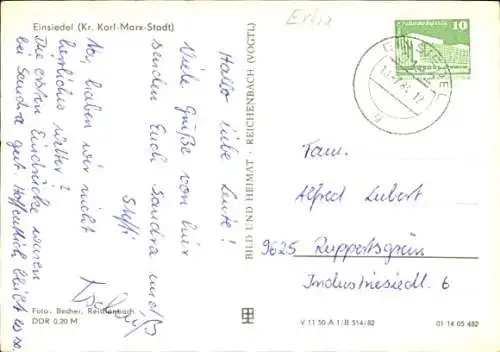 Einsiedel (Kr. Karl-Marx-Stadt)
Hallo liebe Leute!
Viele Grüße von hier
senden Euch Sandra und
Steffi
Na, haben wir nicht
herrliches Wetter?
Die ersten Eindrücke waren
bei Sandra gut. Hoffentlich bleibt es so.
Tschüß
Foto: Becher, Reichenbach
DDR 0,20 M
BILD UND HEIMAT · REICHENBACH (VOGTL)
V 11 50 A 1/B 514/82
01 14 05 482
10
EINSIEDEL
Fam.
Alfred Lubert
9625 Ruppertsgrün
Industriesiedl. 6